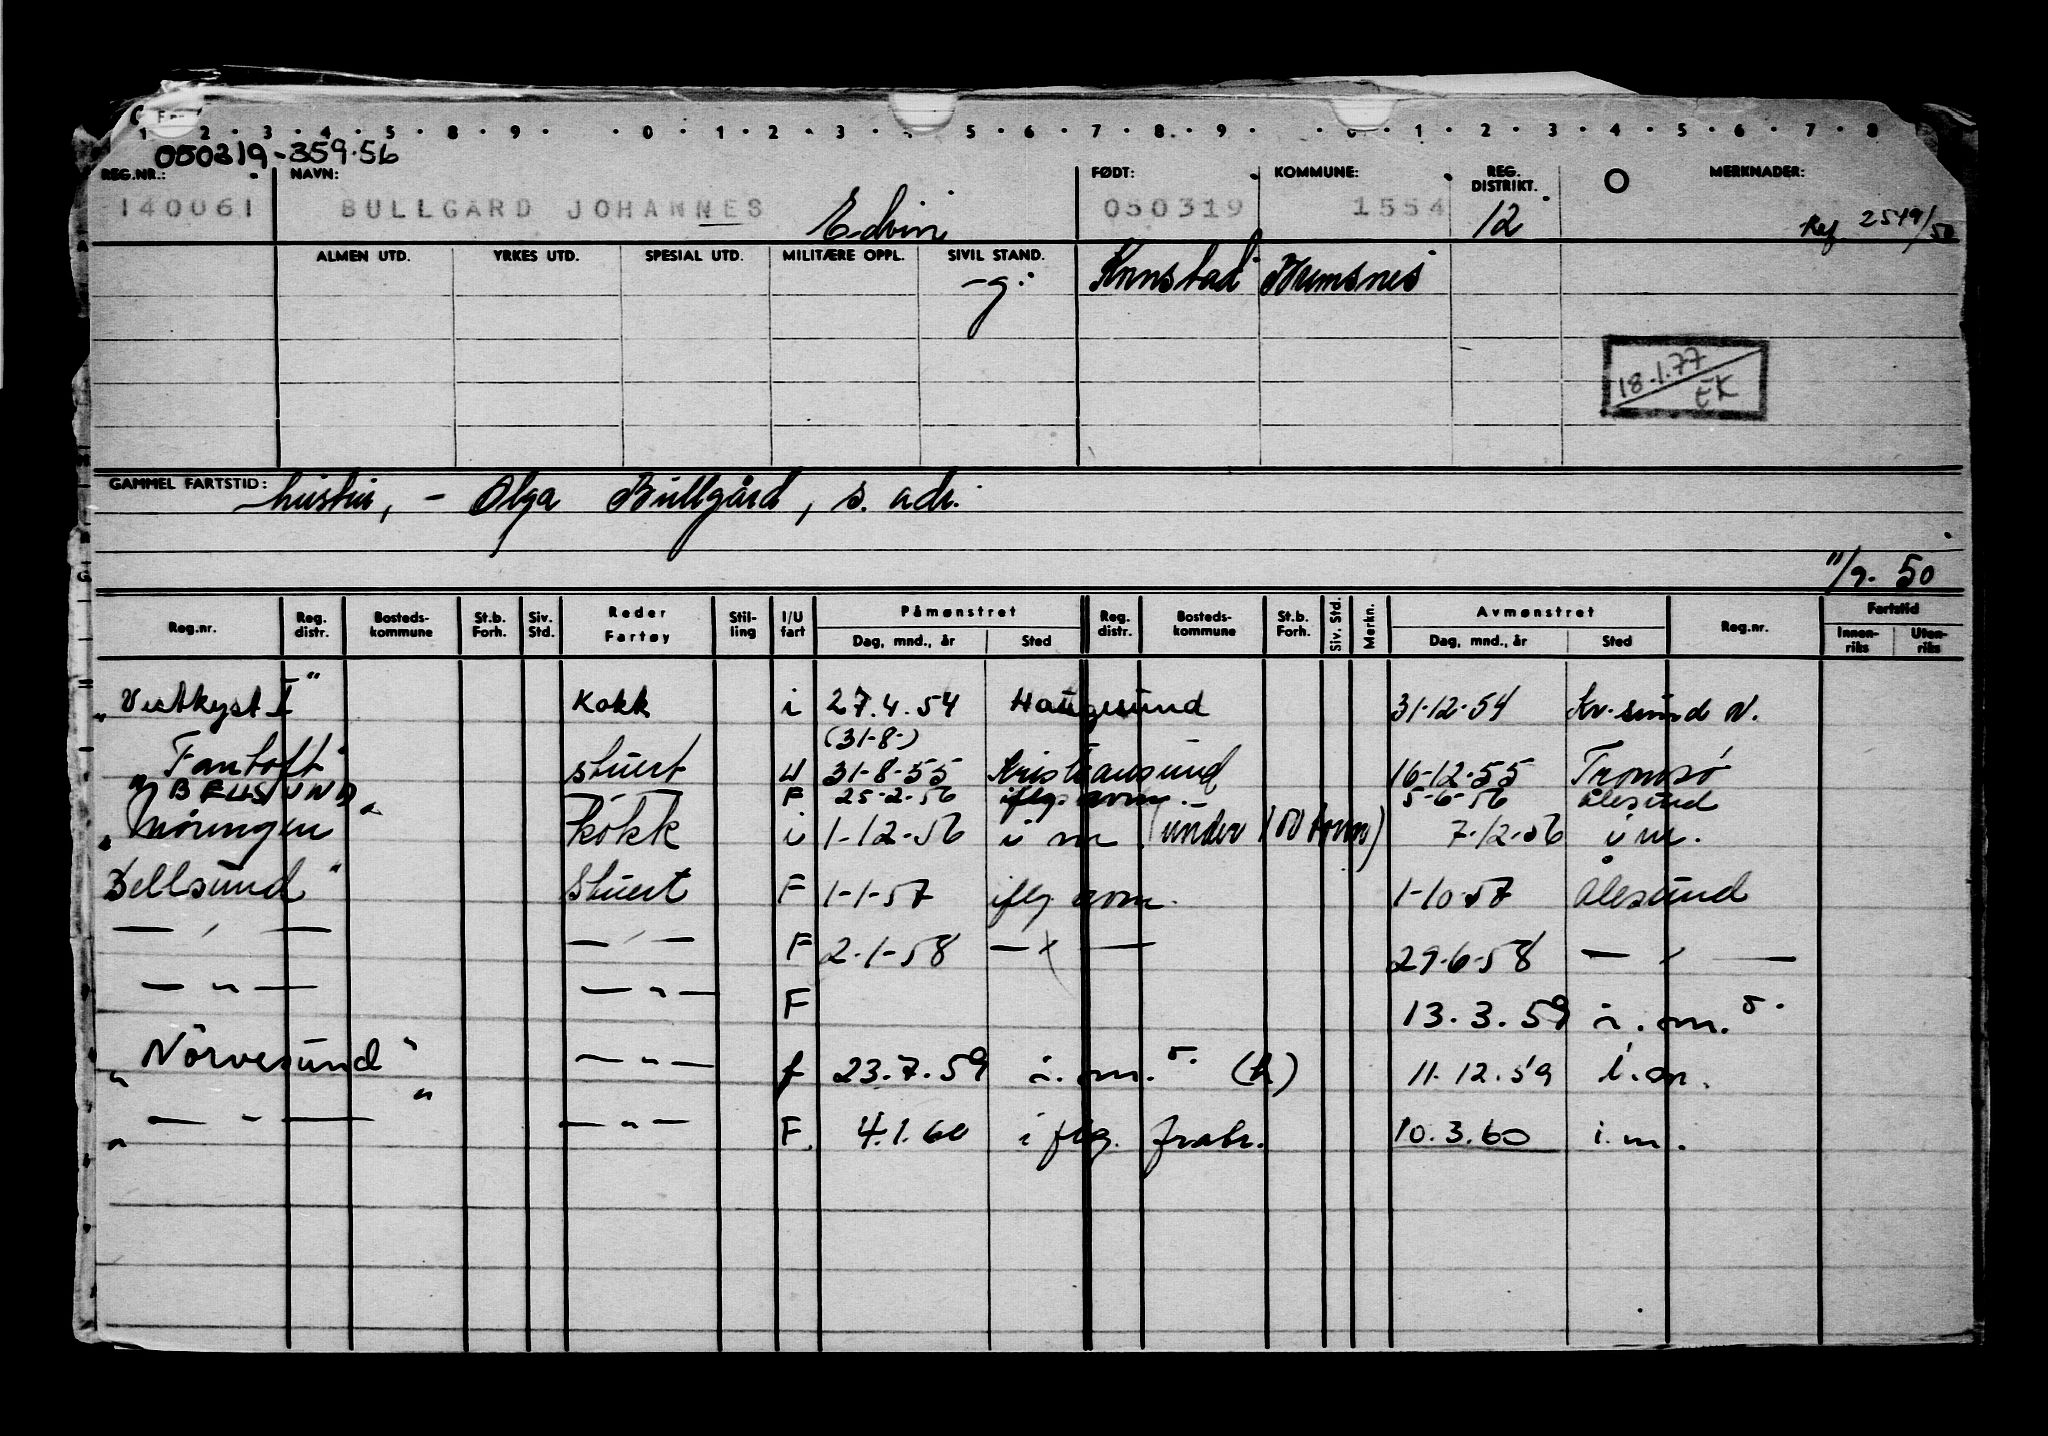 1 · 2 · 3 · 4 · 5 · 8 · 9 · · 0 · 1 · 2 · 3 · · 5 · 6 · 7 · 8 · 9 · · 1 · 2 · 3 · 4 · 5 · 6 · 7 · 8
050319-359.56
REG.NR.: NAVN: FØDT: KOMMUNE: REG. DISTRIKT. MERKNADER:
140061 BULLGÅRD JOHANNES Edvin 050319 1554 12 Ref 2549/50
ALMEN UTD. YRKES UTD. SPESIAL UTD. MILITÆRE OPPL. SIVIL STAND.
-g. Bremsnes
18.1.77
EK
GAMMEL FARTSTID: hustru, - Olga Bullgård, s. adr.
11/9. 50
Reg.nr. Reg. distr. Bosteds-kommune St.b. Forh. Siv. Std. Reder Fartøy Stil-ling I/U fart Påmønstret Reg. distr. Bosteds-kommune St.b. Forh. Siv. Std. Merkn. Avmønstret Reg.nr. Fartstid
Dag, mnd., år Sted Dag, mnd., år Sted Innen-riks Uten-riks
"Vestkyst I" Kokk i 27.4.54 Haugesund 31-12-54 Kr.sund N.
(31-8-)
"Fantoft" stuert U 31-8-55 Kristiansund 16-12-55 Tromsø
"BELLSUND" F 25-2-56 iflg. avm. 5-6-56 Ålesund
"Møringen" kokk i 1-12-56 i m (under 100 tonn) 7-12-56 i m.
Bellsund" Stuert F 1-1-57 iflg avm. 1-10-57 Ålesund
— " — — " — F 2-1-58 — " — 29-6-58 — " —
— " — — " — F 13.3.59 i.m.
"Nörvesund" — " — f 23.7.59 i.m. (h) 11.12.59 i.m.
" — " — " — " — F. 4.1.60 iflg. frabr. 10.3.60 i.m.